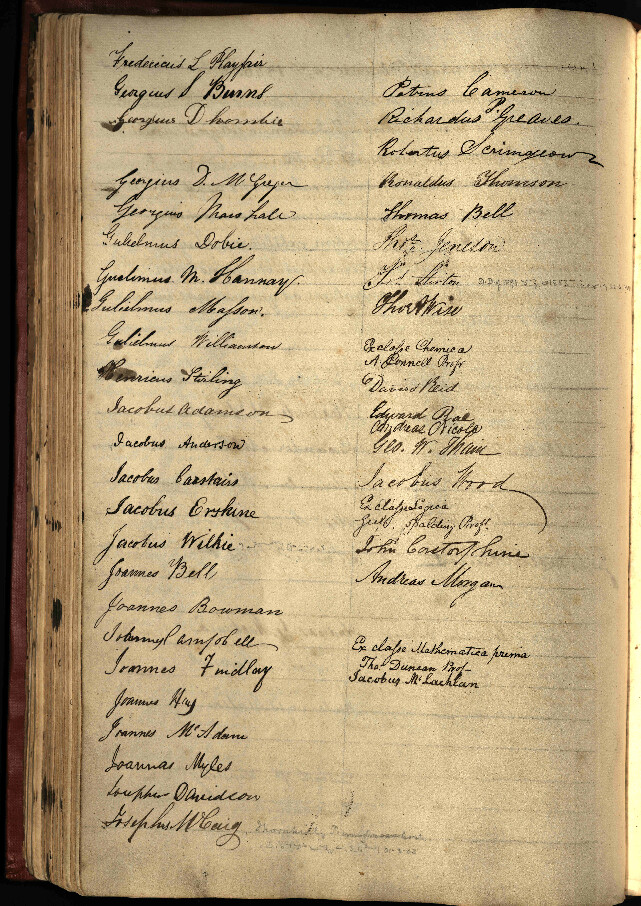 Fredericus L Playfair
Georgius S Burns
Georgius D
Georgius D. McGregor
Georgius Marshall
Gulielmus Dobie.
Gulielmus M. Hannay.
Gulielmus Masson.
Gulielmus Williamson
Henricus Stirling
Jacobus Adamson
Jacobus Anderson
Jacobus Carstairs
Jacobus Erskine
Jacobus Wilkie
Joannes Bell
Joannes Bowman
Campbell
Joannes Findlay
Joannes Hay
Joannes McAdam
Joannas Myles
Josephus Davidson
Josephus McCaig
Petrus Cameron
Richardus P. Greaves.
Robertus Scrimgeour
Ronaldus Thomson
Thomas Bell
Thos
Thos Wise
Ex classe Chemica
A. Connell Profr
David Reid
Edward Rae
Andreas Nicola
Geo. W. Thain
Jacobus Wood
Ex classe Logica
Gul. Spalding Profr.
John Corstorphine
Andreas Morgan
Ex classe Mathematica prima
Thos. Duncan Prof
Jacobus McLachlan